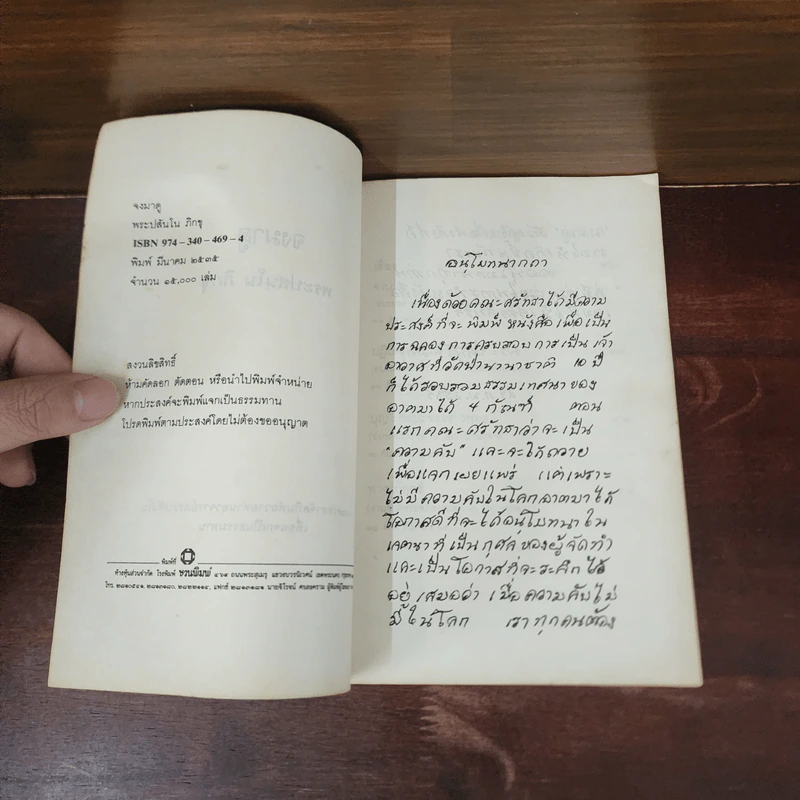 จงมาดู
พระปสันโน ภิกขุ
ISBN 974-340-469-4
พิมพ์ มีนาคม ๒๕๓๕
จำนวน ๑๕,๐๐๐ เล่ม
สงวนลิขสิทธิ์
ห้ามคัดลอก ตัดตอน หรือนำไปพิมพ์จำหน่าย
หากประสงค์จะพิมพ์แจกเป็นธรรมทาน
โปรดพิมพ์ตามประสงค์โดยไม่ต้องขออนุญาต
พิมพ์ที่
ห้างหุ้นส่วนจำกัด โรงพิมพ์ ชวนพิมพ์ ๔๖๑ ถนนพระสุเมรุ แขวงบวรนิเวศน์ เขตพระนคร
โทร.
อนุโมทนากถา
เนื่องด้วยคณะศรัทธาได้มีความ
ประสงค์ที่จะพิมพ์หนังสือเพื่อเป็น
การฉลองการครบรอบการเป็นเจ้า
อาวาสที่วัดป่านานาชาติ 10 ปี
ก็ได้รวบรวมธรรมเทศนาของ
อาตมาได้ 4 กัณฑ์ ตอน
แรกคณะศรัทธาว่าจะเป็น
"ความลับ" และจะได้ถวาย
เพื่อแจกเผยแพร่ แต่เพราะ
ไม่มีความลับในโลกอาตมาได้
โอกาสดีที่จะได้อนุโมทนาใน
เจตนาที่เป็นกุศลของผู้จัดทำ
และเป็นโอกาสที่จะระลึกได้
อยู่เสมอว่า เมื่อความลับไม่
มีในโลก เราทุกคนต้อง